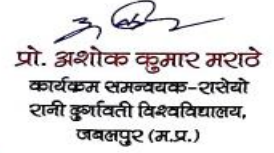 प्रो. अशोक कुमार मराठे
कार्यक्रम समन्वयक-रासेयो
रानी दुर्गावती विश्वविद्यालय,
जबलपुर (म.प्र.)